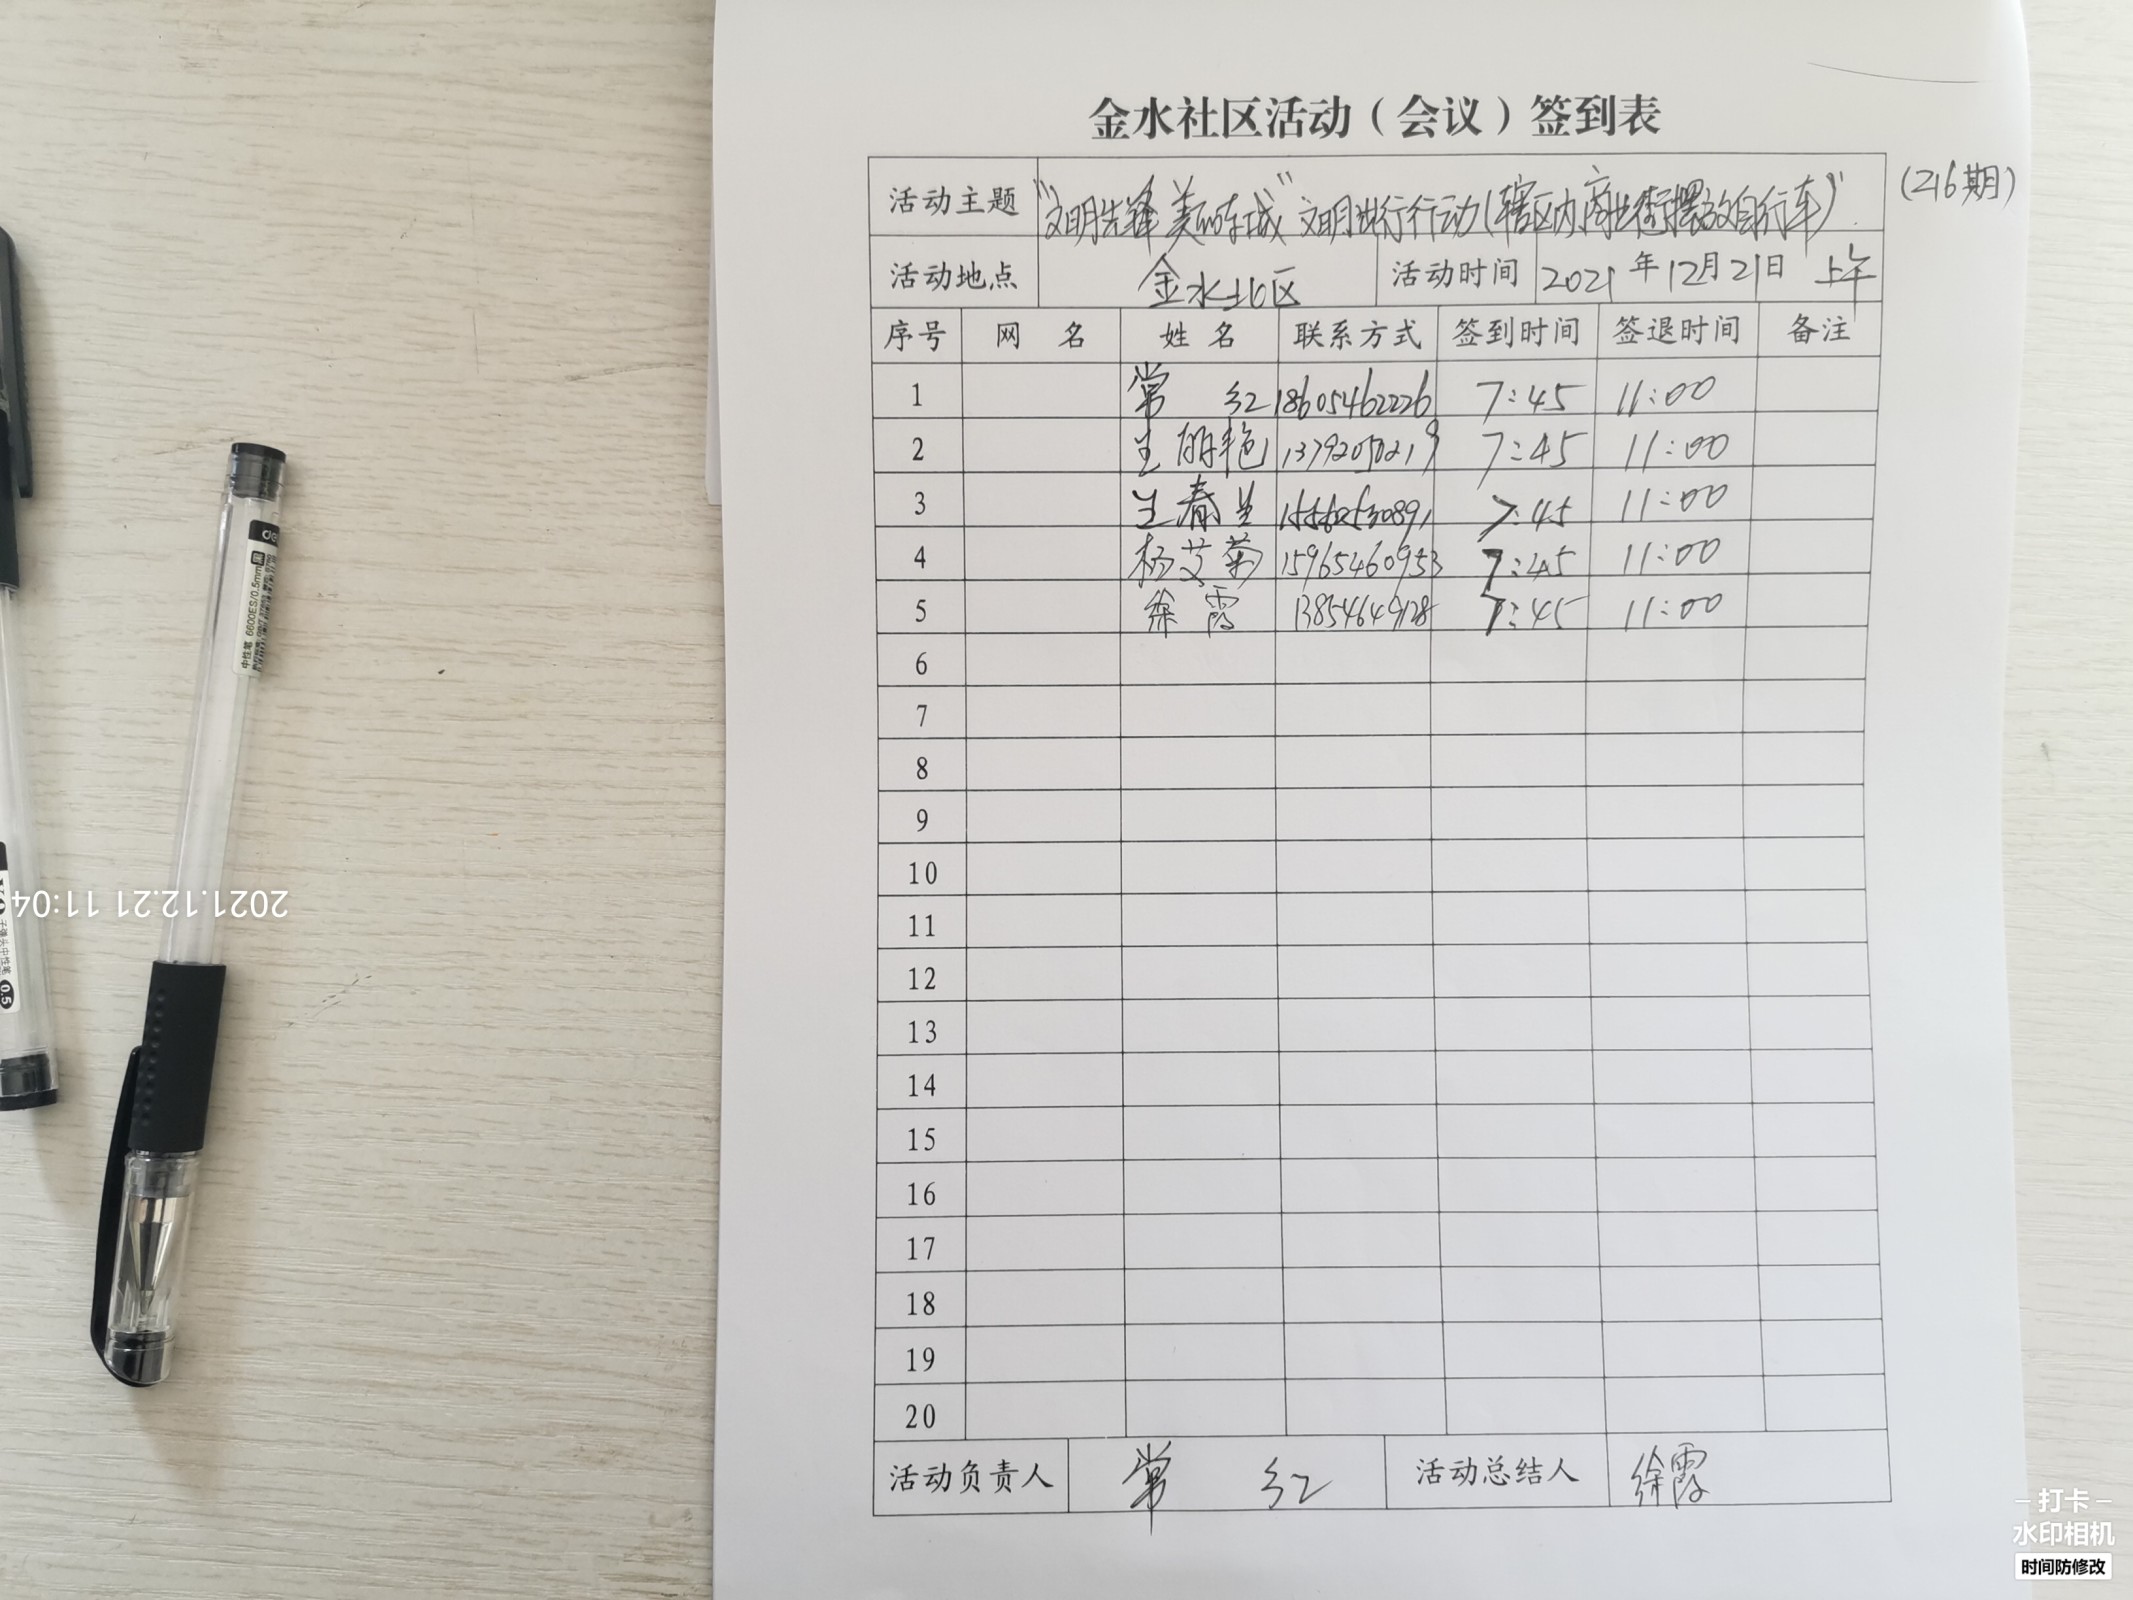 金水社区活动（会议）签到表
活动主题 "文明先锋 美丽东城" 文明进行行动(辖区内商业街摆放自行车) (216期)
活动地点 金水北区 活动时间 2021年12月21日 上午
序号 网 名 姓 名 联系方式 签到时间 签退时间 备注
1 常 红 18605462226 7:45 11:00
2 王丽艳 13792050219 7:45 11:00
3 王春兰 7:45 11:00
4 杨艾菊 15965460953 7:45 11:00
5 徐霞 13854649128 7:45 11:00
6
7
8
9
10
11
12
13
14
15
16
17
18
19
20
活动负责人 常 红 活动总结人 徐霞
2021.12.21 11:04
中性笔 6600ES/0.5mm
0.5
打卡
水印相机
时间防修改